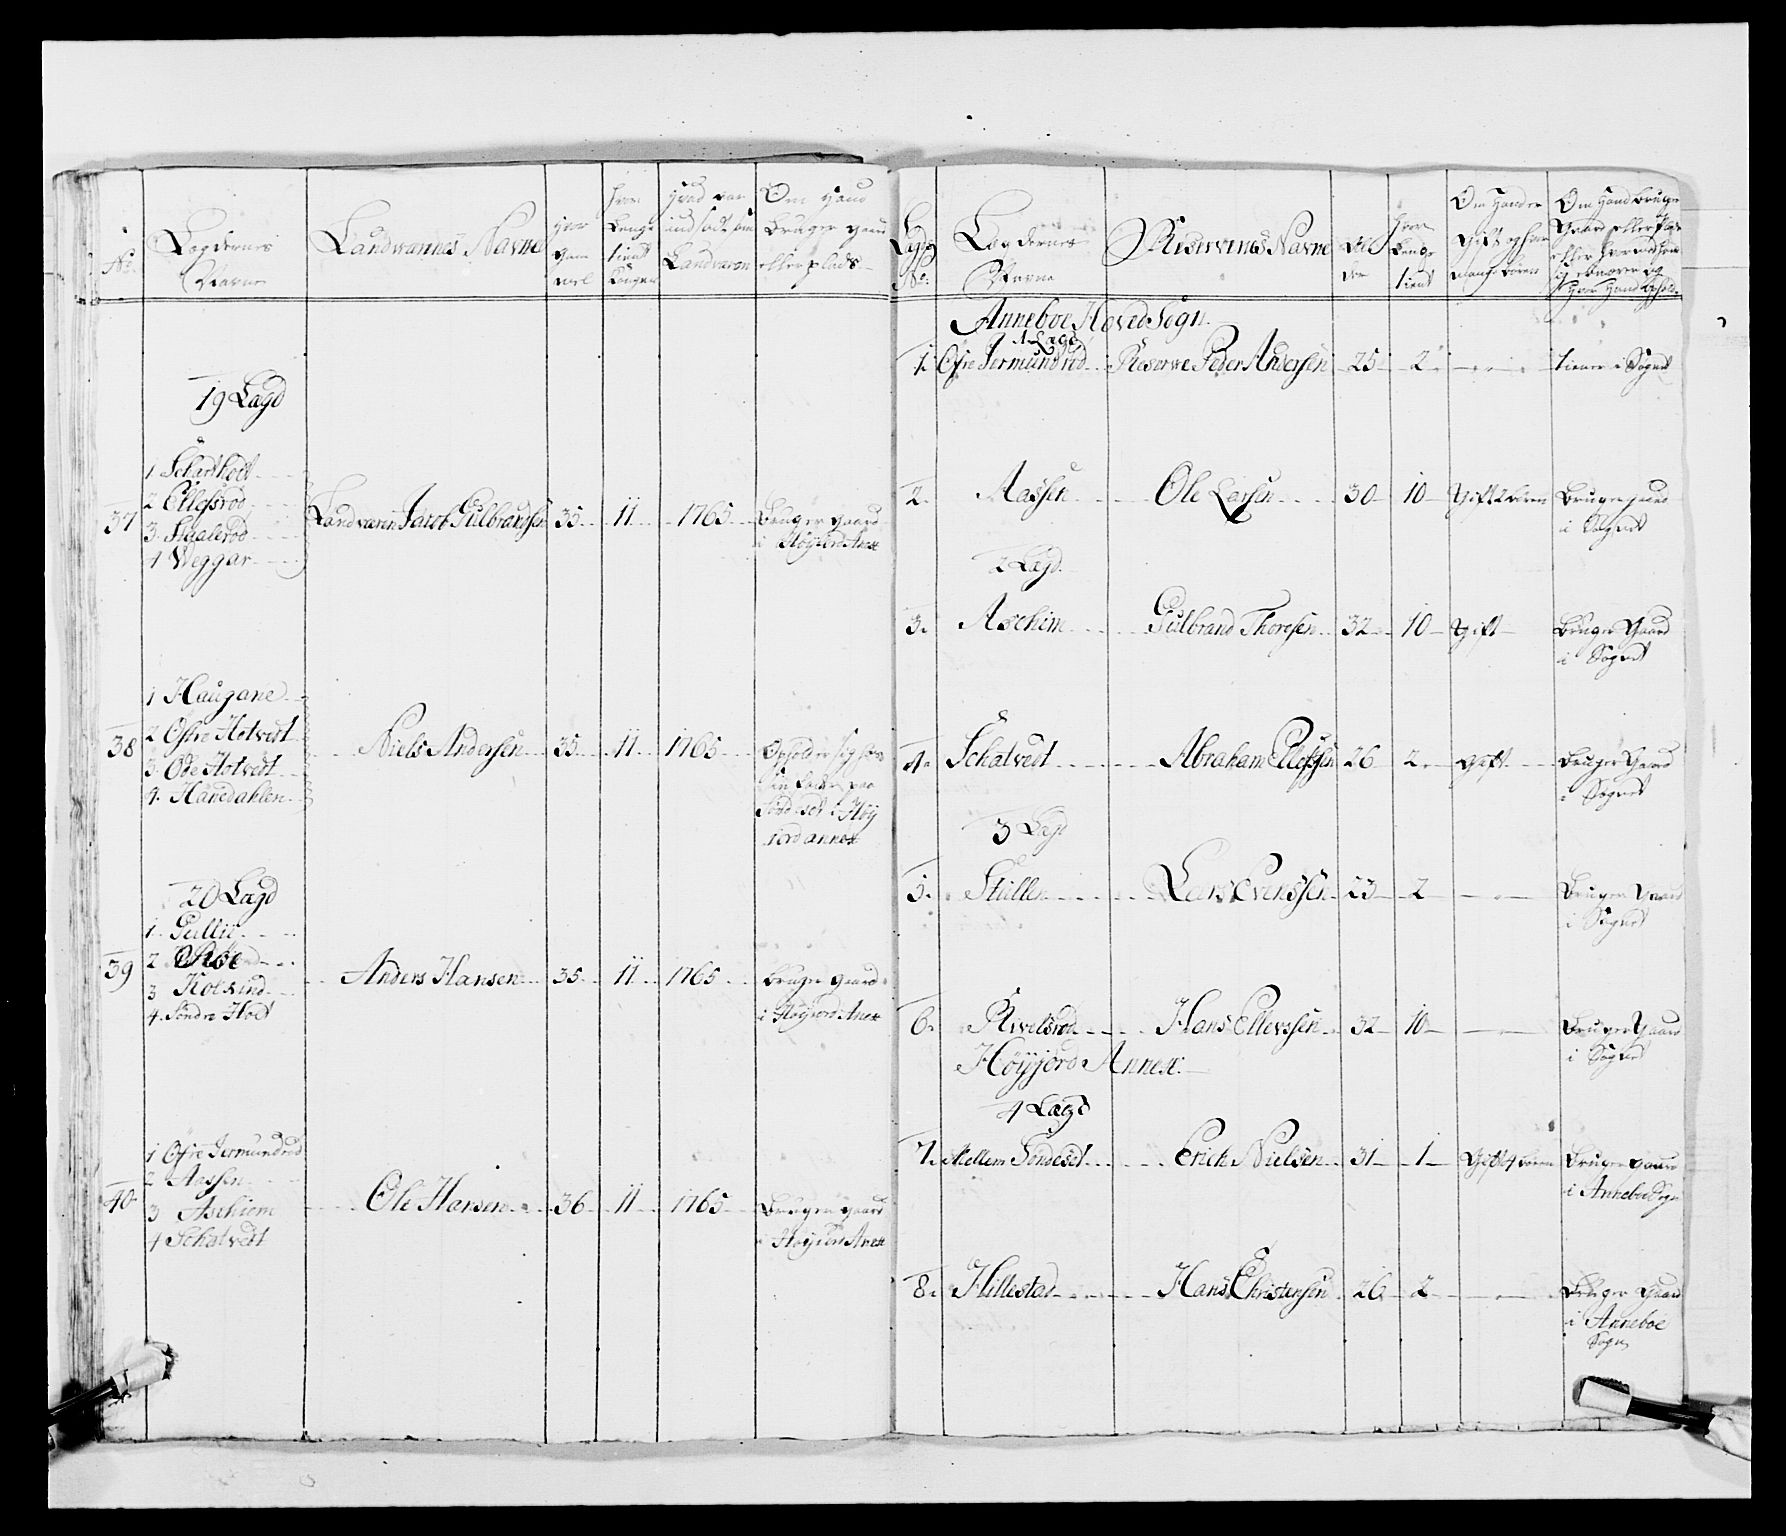 No.
Lægdernes Navne
Landvarnes Navne
Hvor gammel
Hvor Lenge tient Kongen
Hvad var indsadt som Landværn
Om Hand bruger gaard eller plads
19 Lægd
1 Scharthoet
2 Ellefsrød
3. Skalerød
4 Weggar
37 Landværn Jacob Gulbrandsen 35 11 1765 Bruger gaard
i Høyjord Anex
1 Haugane
2 Østre Hotvedt
3. Øde Hotvedt
4. Hanedahlen
38 Niels Andersen 35 11 1765 Opholder sig hos
sin Fader paa
Søndeset i Høy
jord annex
20 Lægd
1. Gullie
2 Røe
3 Kolkind
4. Søndre Hoet
39 Anders Hansen 35 11 1765 bruger gaard
i Høyjord Anex
1 Øfre Jermundrød
2 Aassen
3 Aschiem
4 Schatvedt
40 Ole Hansen 36 11 1765 Bruger gaard
i Høyjord Anex
Lægds No:
Lægdernes Navne
Reservens Navne
Alder
Hvor Lenge tient
Om Hand er Gift og hvor mange børn
Om Hand bruger Gaard eller Plads
Anneboe Hoved Sogn.
1 Lægd
1. Øfre Jermundrød Reserve Peder Andersen 25 2 tiener i Sognet
2. Aassen Ole Larsen 30 10 Gift 2 børn Bruger gaard
i Sognet
2 Lægd.
3. Aschim Gulbrand Thoresen 32 10 Gift Bruger Gaard
i Sognet
4. Schatvedt Abraham Ellefsen 26 2 gift Bruger Gaard
i Sognet
3 Lægd
5. Stullen Lars Evenssen 23 2 Bruger Gaard
i Sognet
6. Rivelsrød Hans Ellevssen 32 10 Bruger Gaard
i Sognet
Høyjord Annex.
4 Lægd
7. Mellem Søndeset Erich Nielsen 31 1 Gift 4 børn Bruger gaard
i Anneboe Sogn
8. Hillestad Hans Christensen 26 2 Bruger Gaard
i Anneboe
Sogn